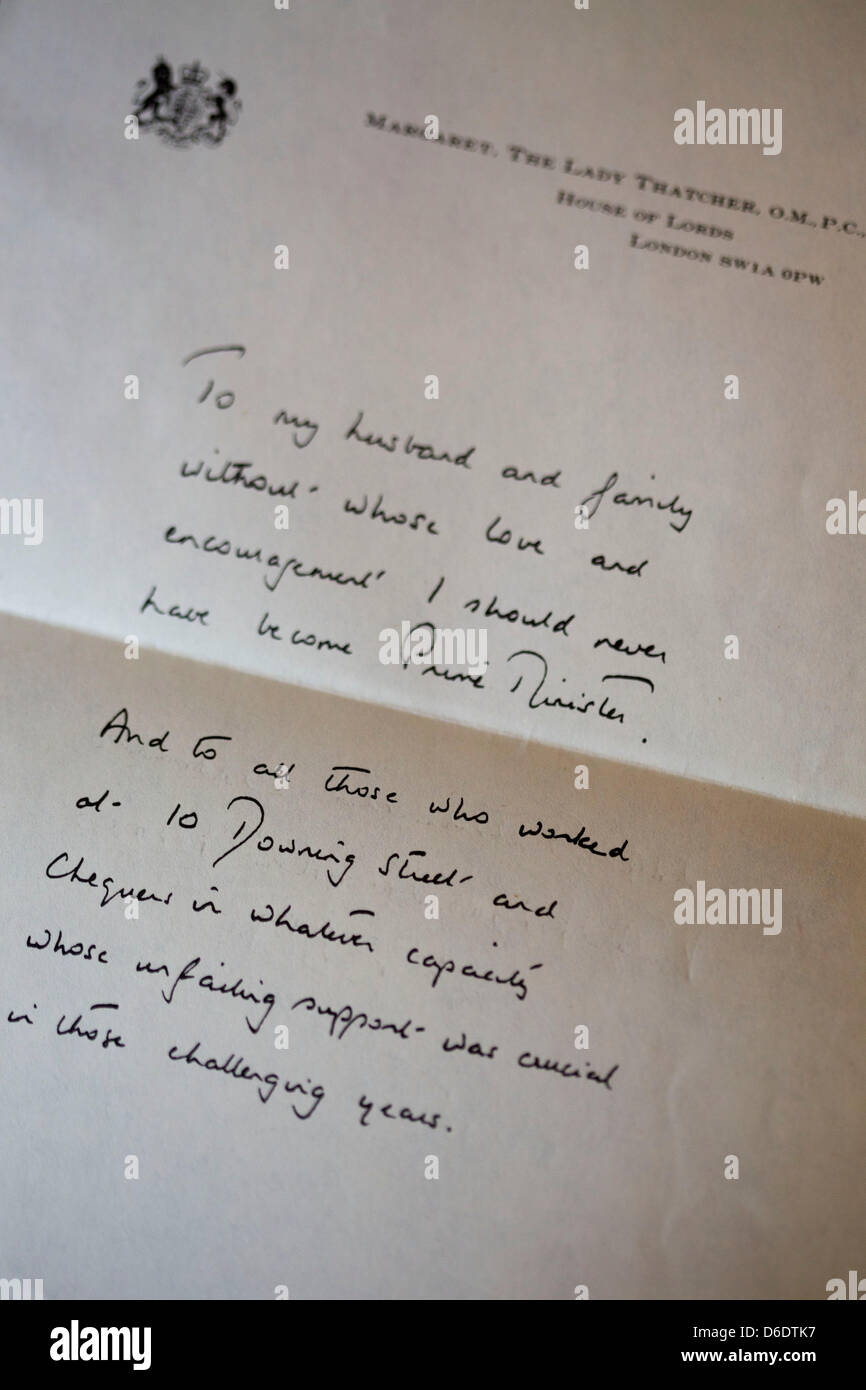 MARGARET, THE LADY THATCHER, O.M., P.C.,
HOUSE OF LORDS
LONDON SW1A 0PW
To my husband and family
without whose love and
encouragement I should never
have become Prime Minister.
And to all those who worked
at 10 Downing Street and
Chequers in whatever capacity
whose unfailing support was crucial
in those challenging years.
alamy
alamy
Image ID: D6DTK7
www.alamy.com